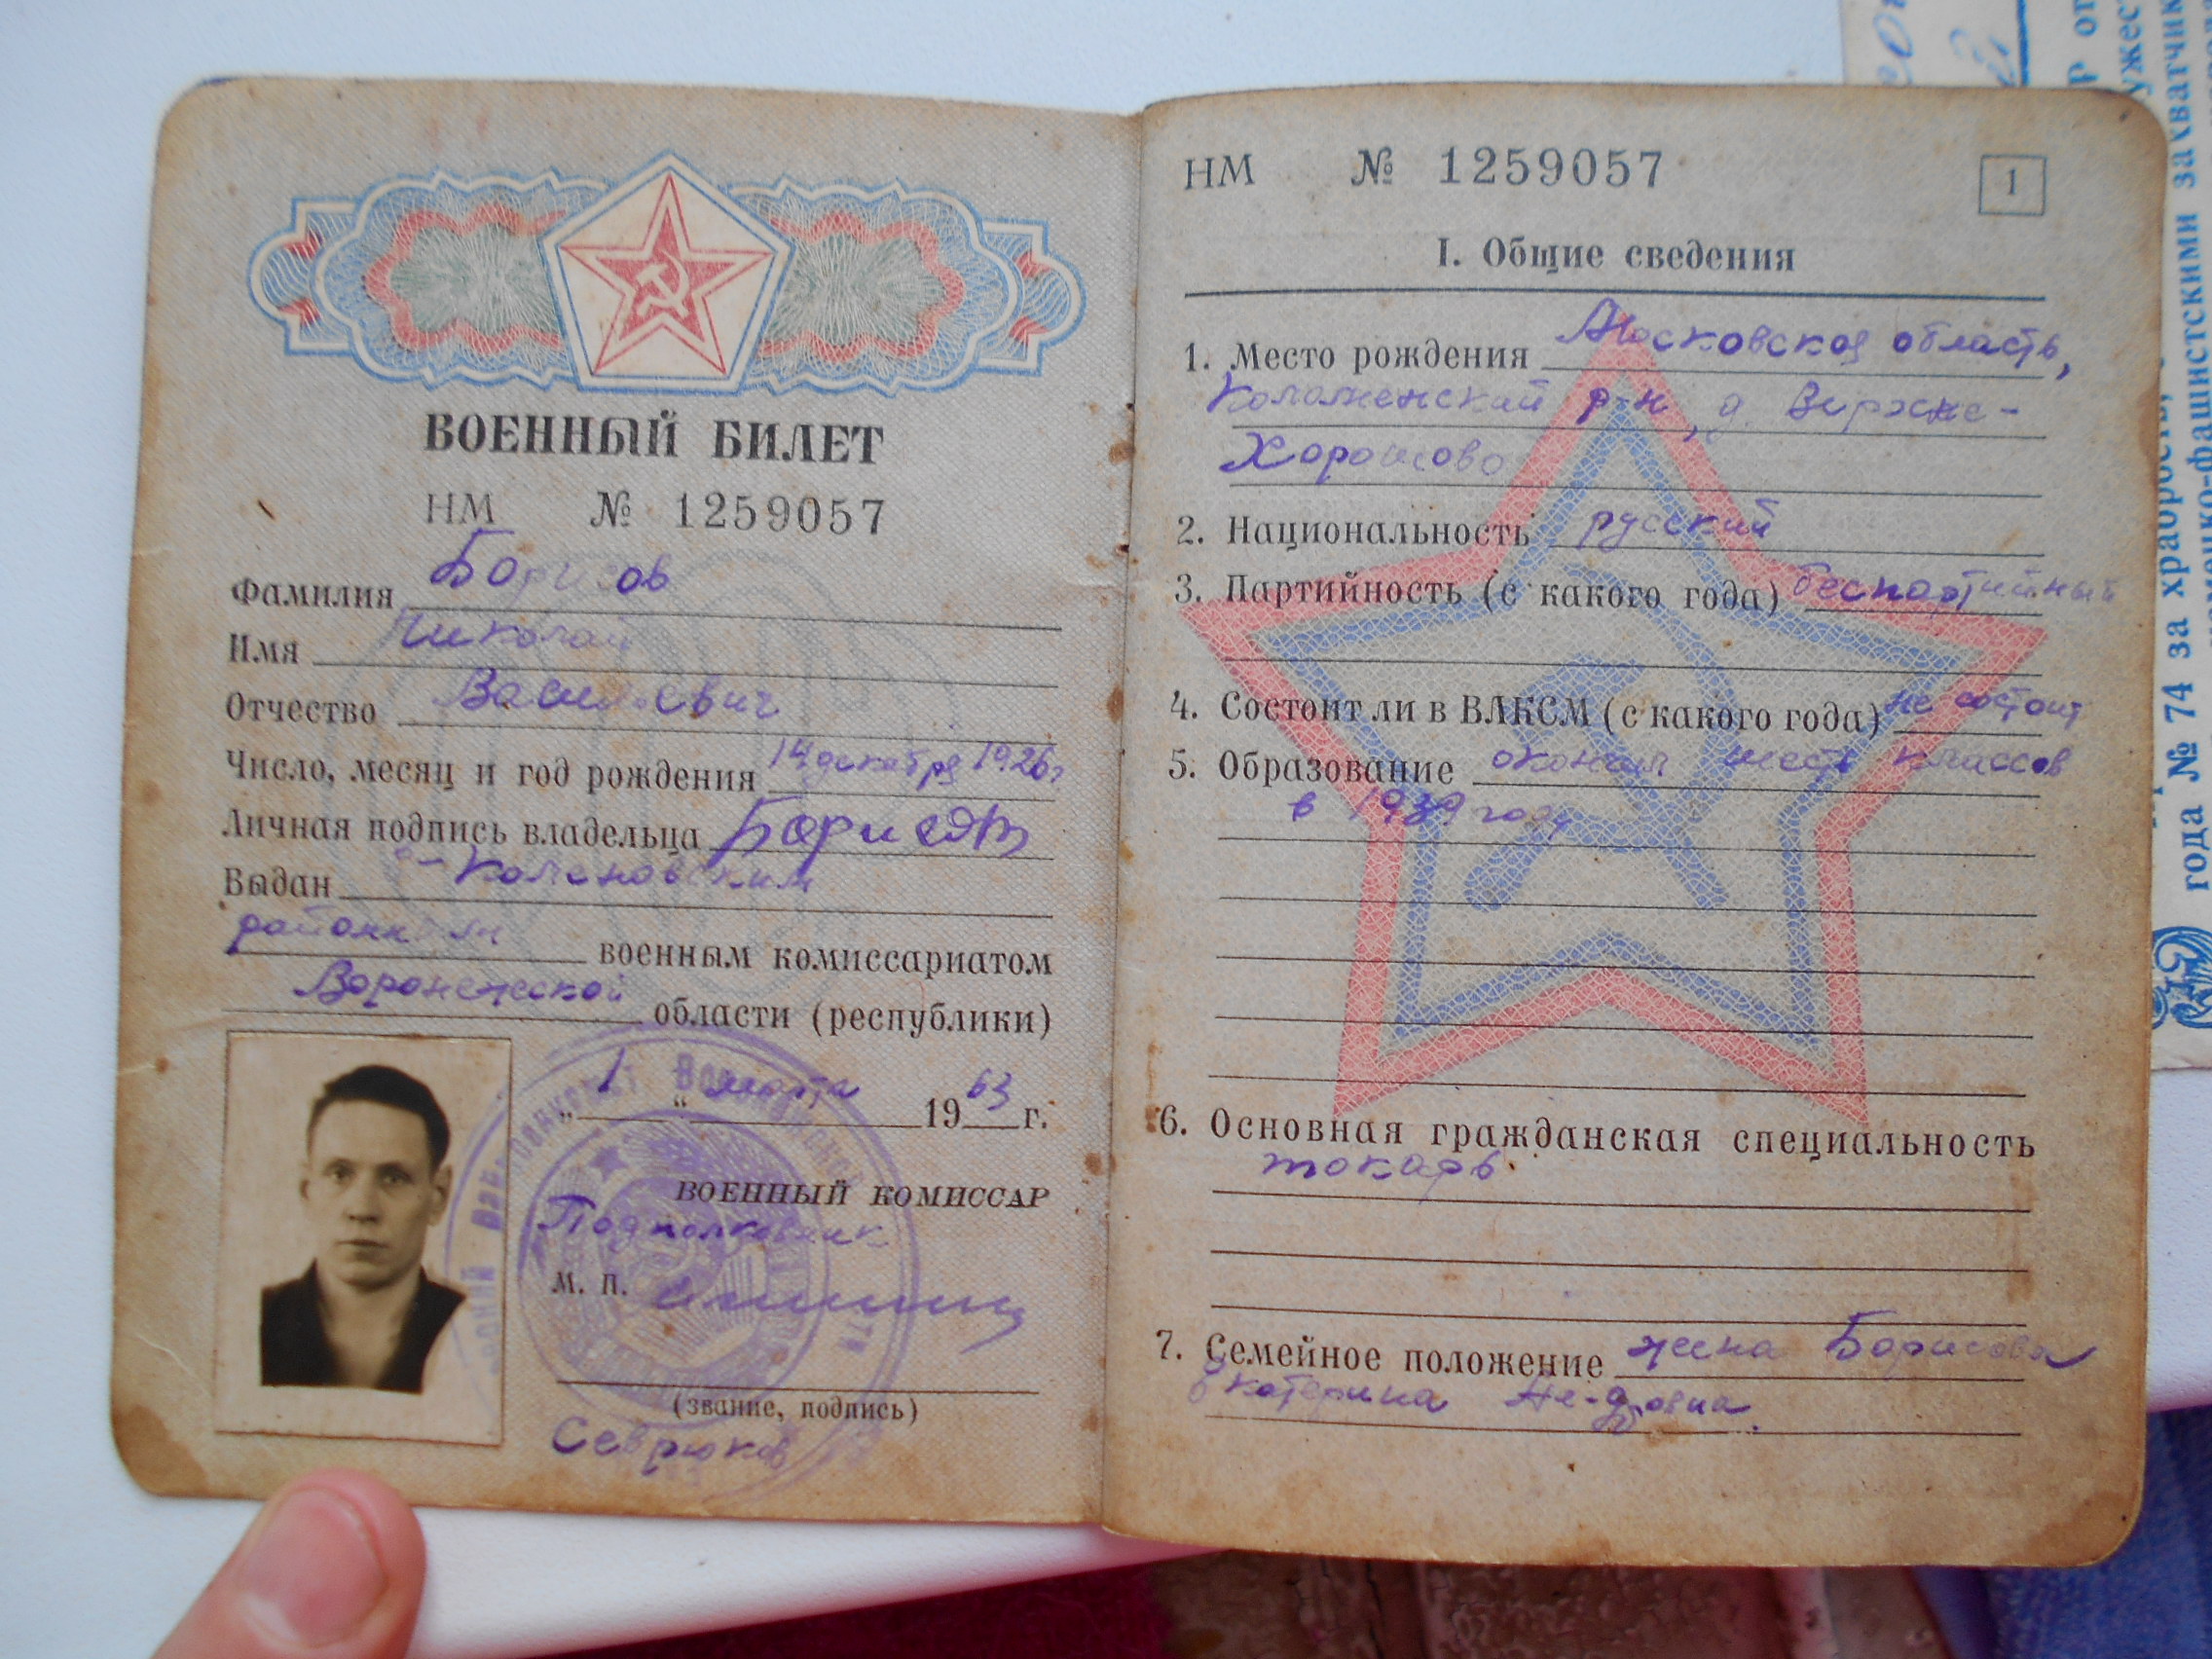 ВОЕННЫЙ БИЛЕТ
НМ № 1259057
Фамилия Борисов
Имя Николай
Отчество Васильевич
Число, месяц и год рождения 14 декабря 1926 г
Личная подпись владельца Борисов
Выдан
районным военным комиссариатом
Воронежской области (республики)
„ 1 “ марта 19 63 г.
ВОЕННЫЙ КОМИССАР
Подполковник
М. П.
(звание, подпись)
Севрюков
НМ № 1259057
1
I. Общие сведения
1. Место рождения Московская область,
Коломенский р-н, д.
Хорошово
2. Национальность русский
3. Партийность (с какого года) беспартийный
4. Состоит ли в ВЛКСМ (с какого года) не состоит
5. Образование окончил шесть классов
в 1939 году
6. Основная гражданская специальность
токарь
7. Семейное положение жена Борисова
Екатерина
года № 74 за храбрость,
немецко-фашистскими захватчик